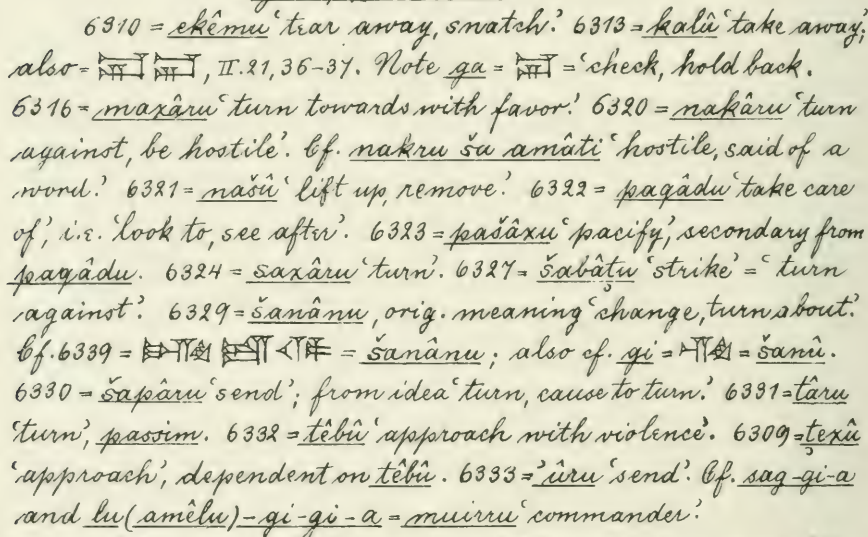 6310 = ekêmu ‘tear away, snatch.’ 6313 = kalû ‘take away’;
also = 𒂵 𒂵, II. 21, 36-37. Note ga = 𒂵 = ‘check, hold back.
6316 = maxâru ‘turn towards with favor.’ 6320 = nakâru ‘turn
against, be hostile’. Cf. nakru ša amâti ‘hostile, said of a
word.’ 6321 = našû ‘lift up, remove.’ 6322 = pagâdu ‘take care
of’, i.e. ‘look to, see after’. 6323 = pašâxu ‘pacify’, secondary from
pagâdu. 6324 = saxâru ‘turn’. 6327 = šabâṭu ‘strike’ = ‘turn
against.’ 6329 = šanânu, orig. meaning ‘change, turn about.’
Cf. 6339 = = šanânu; also cf. gi = 𒄀 = šanû.
6330 = šapâru ‘send’; from idea ‘turn, cause to turn.’ 6331 = târu
‘turn’, passim. 6332 = têbû ‘approach with violence’. 6309 = ṭexû
‘approach’, dependent on têbû. 6333 = ’ûru ‘send’. Cf. sag-gi-a
and lu(amêlu)-gi-gi-a = muirru ‘commander.’